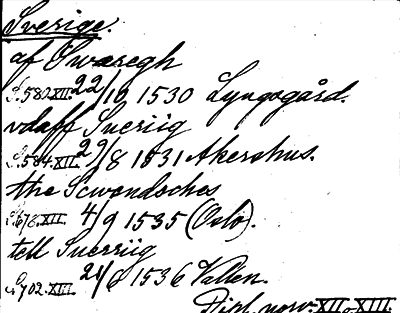 Sverige.
af Swæregh
S. 582. XII. 22/10 1530 Lyngogård.
vdaff Sueriig
S. 584. XII. 29/8 1531 Akershus.
the Scwondsches
XII. 4/9 1535 (Oslo).
tell Suerriig
702. XII. 21/6 1536 Vallen.
Dipl. norv. XII o. XIII.